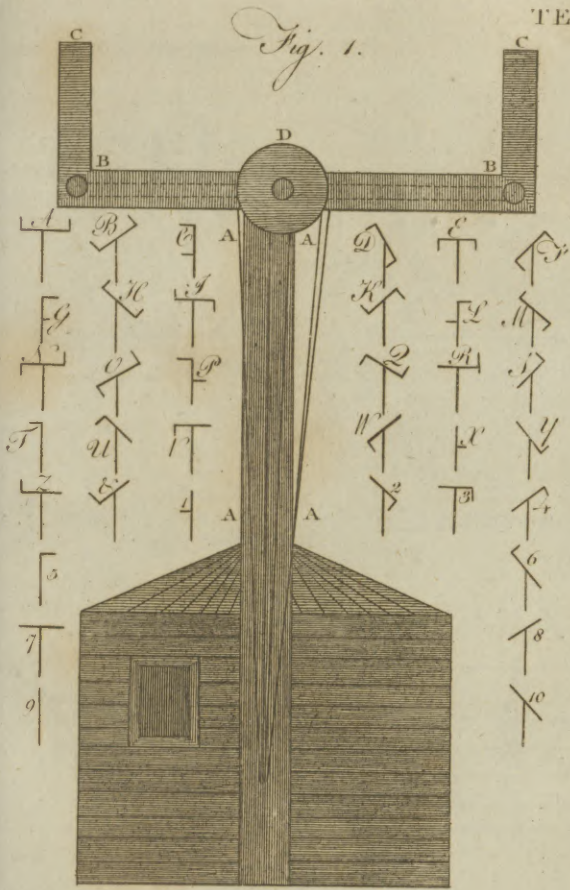 TE
Fig. 1.
C C
D
B B
A B C A A D E F
G H I K L M
N O P Q R S
T U V W X Y
Z & 1 A A 2 3 4
5 6
7 8
9 10